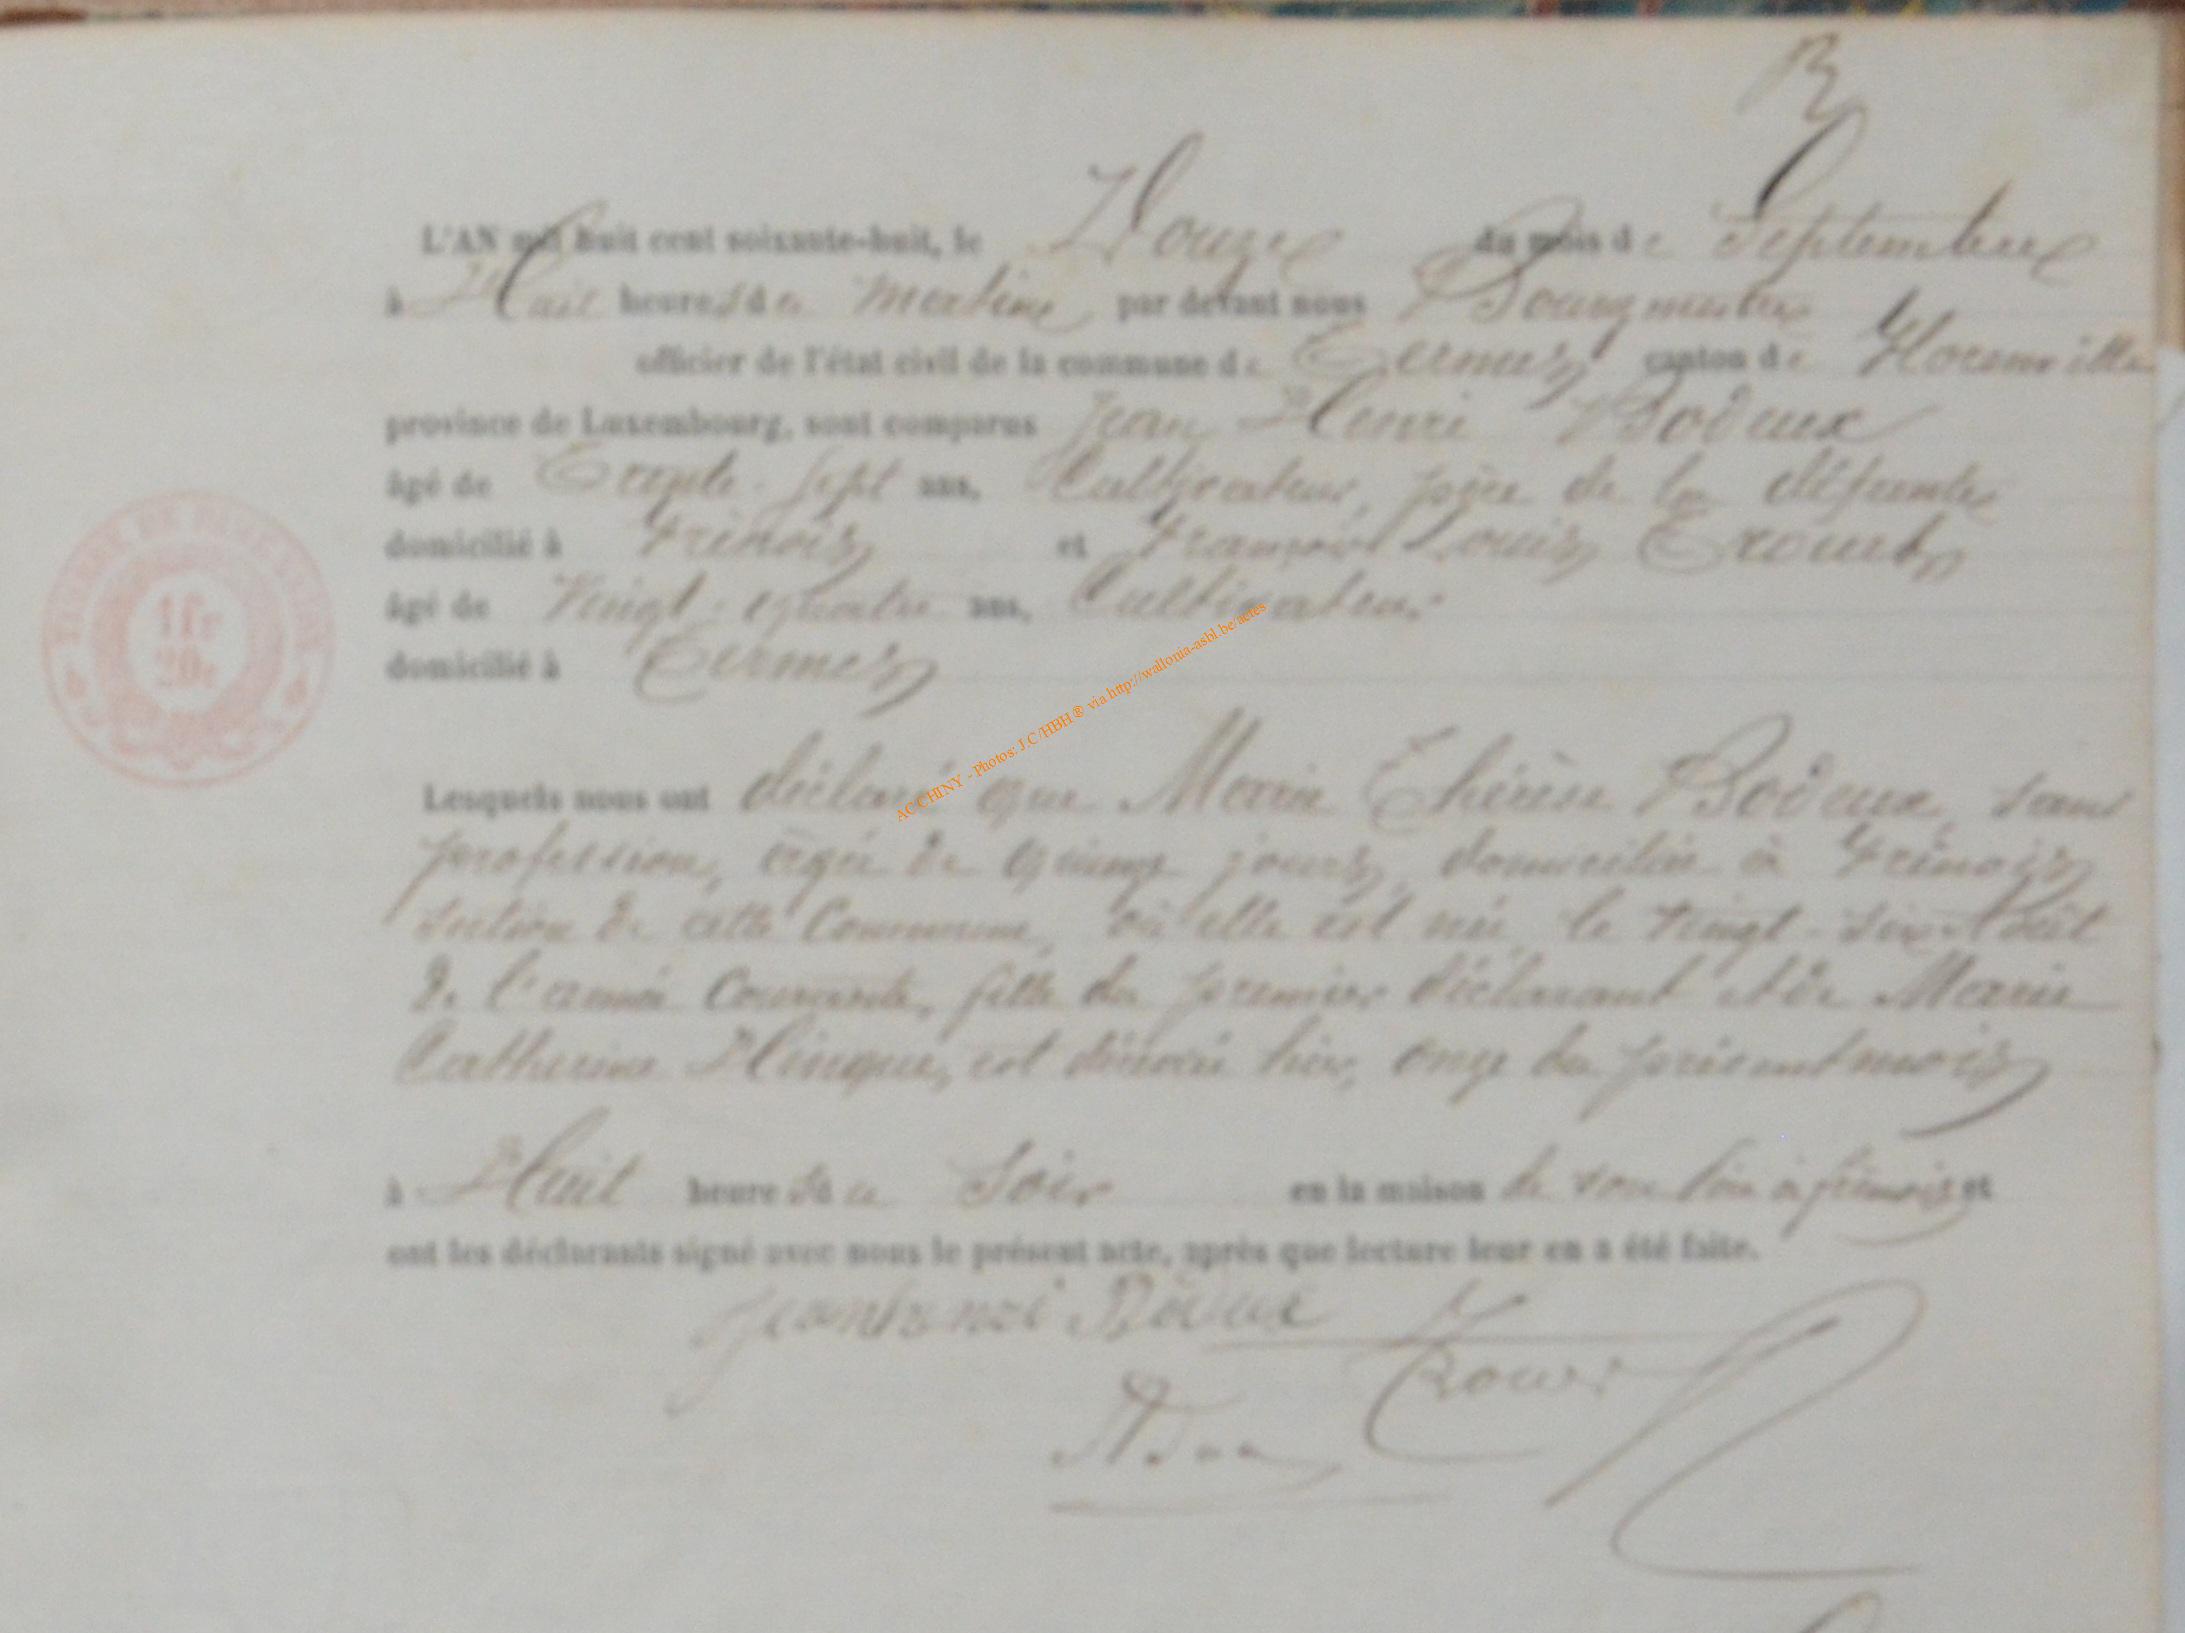 L'AN mil huit cent soixante-huit, le Douze du mois de Septembre
à Huit heures du matin par devant nous Bourgmestre
officier de l'état civil de la commune de Termes canton de Florenville
province de Luxembourg, sont comparus Jean Henri Bodeux
âgé de Trente-sept ans, Cultivateur, père de la défunte
domicilié à Frénois et François Louis
âgé de Vingt-quatre ans, Cultivateur
domicilié à Termes
TIMBRE DE DIMENSION
1 fr
20c
Lesquels nous ont déclaré que Marie Thérèse Bodeux, sans
profession, âgée de quinze jours, domiciliée à Frénois
section de cette Commune, où elle est née, le vingt-six Août
de l'année Courante, fille du premier déclarant et de Marie
Catherine Hinque, est décédée hier, onze du présent mois
à Huit heures du Soir en la maison de son père à frénois et
ont les déclarants signé avec nous le présent acte, après que lecture leur en a été faite.
jeanhenri Bodeux
AC CHINY - Photos: J.C/HBH ® via http://wallonia-asbl.be/actes